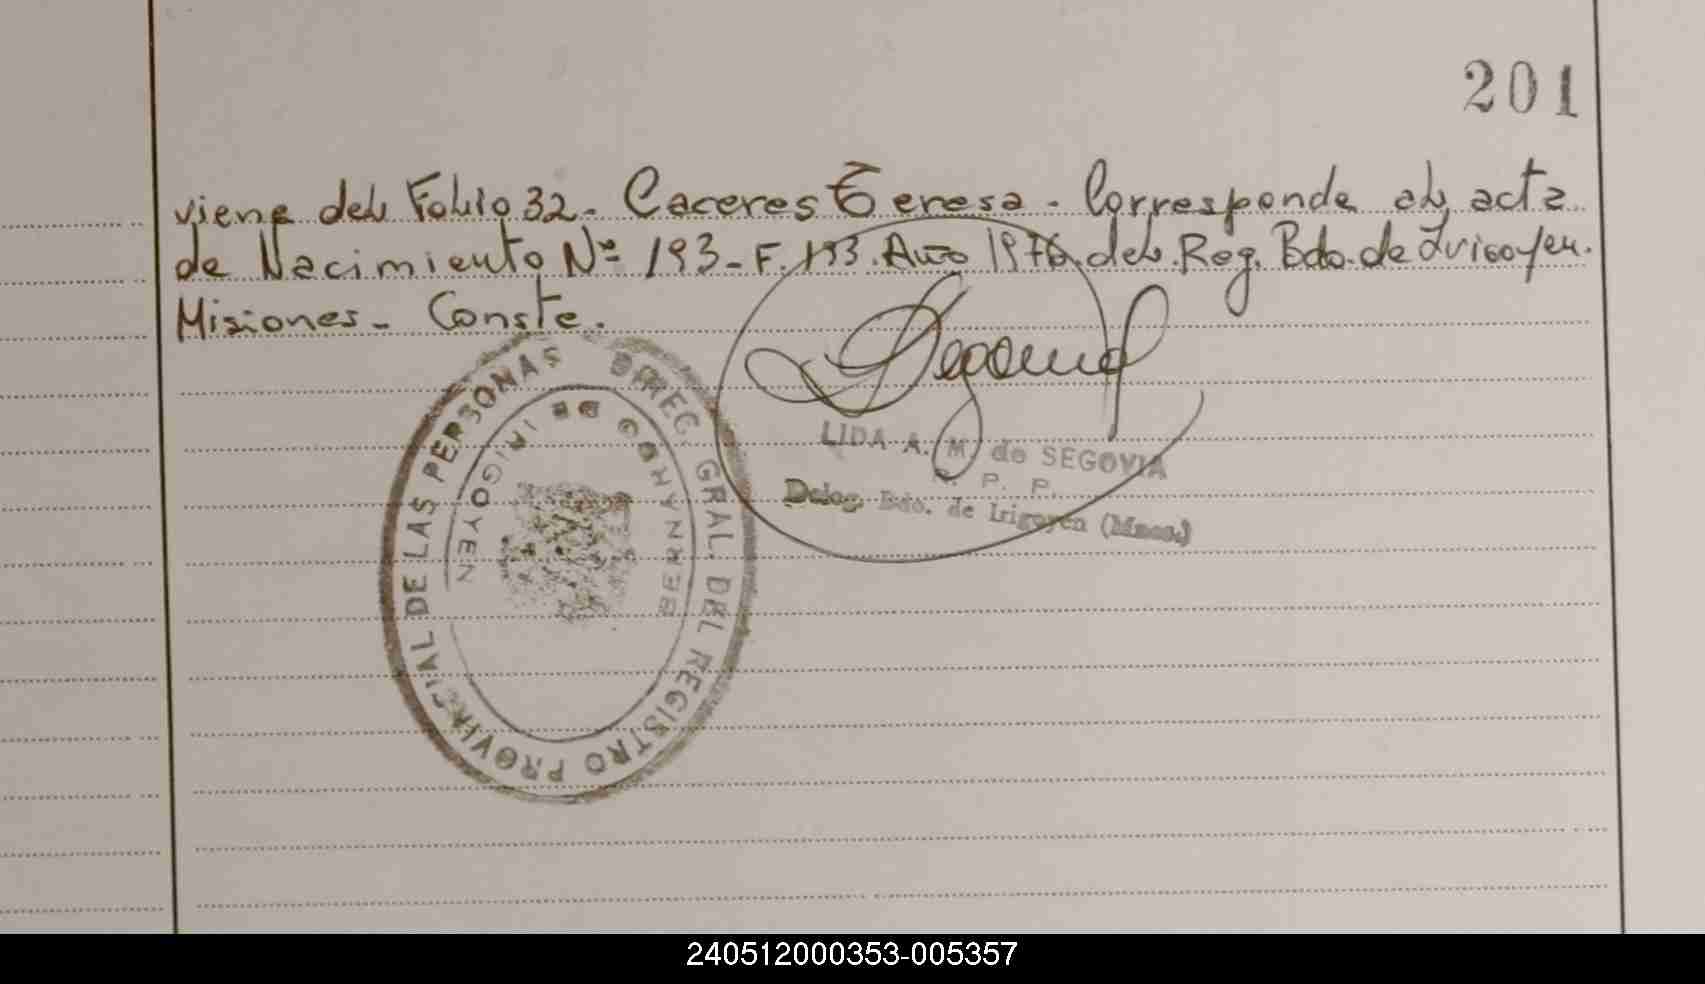 201
viene del Folio 32. Caceres Teresa. Corresponde al acta
de Nacimiento Nº 193 - F. 193. Año 1976 del Reg. Bdo. de Irigoyen.
Misiones - Conste.
LIDA A. M. de SEGOVIA
R. P. P.
Deleg. Bdo. de Irigoyen (Mnes.)
DIREC. GRAL. DEL REGISTRO PROVINCIAL DE LAS PERSONAS
BERNARDO DE IRIGOYEN
240512000353-005357